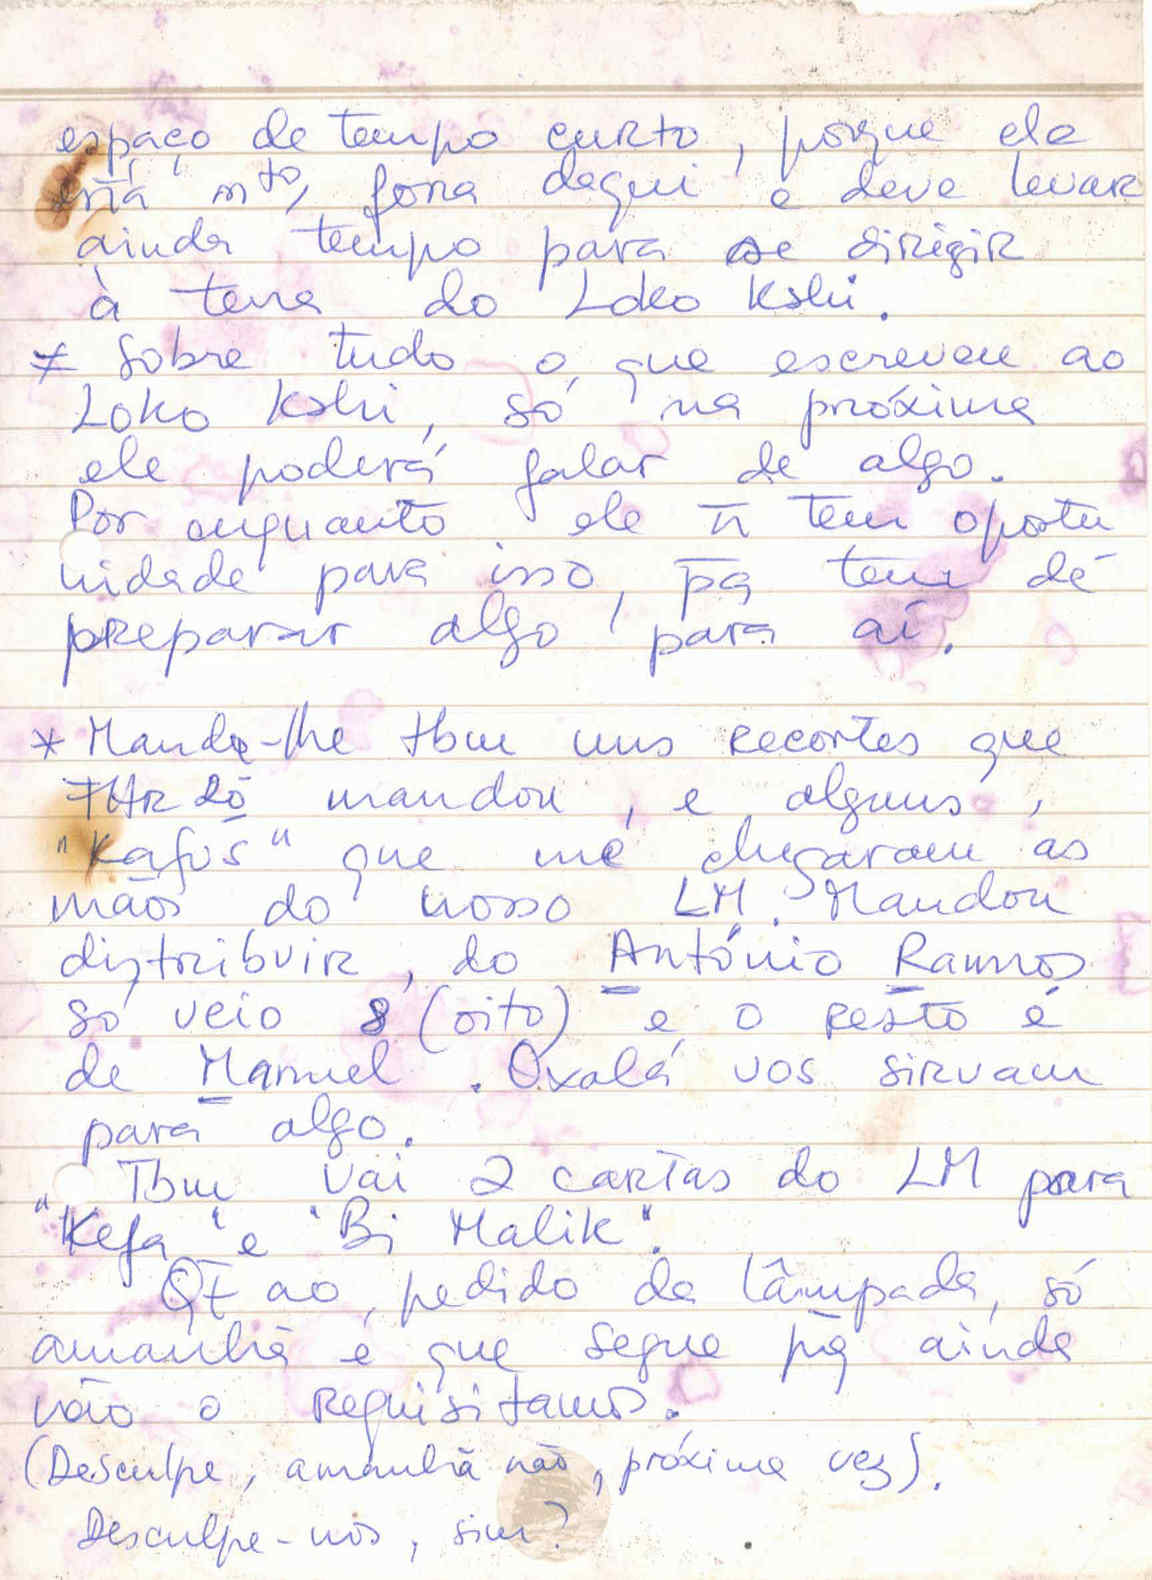 espaço de tempo curto, porque ele
está mto, fora daqui e deve levar
ainda tempo para se dirigir
à terra do Loko Kshi.
* Sobre tudo o que escreveu ao
Loko Kshi, só na próxima
ele poderá falar de algo.
Por enquanto ele ñ tem oportu
nidade para isso, pq tem de
preparar algo para aí.
* Manda-lhe tbm uns recortes que
mandou, e alguns,
"Kafus" que me chegaram às
mãos do nosso LM. Mandou
distribuir, do António Ramos
só veio 8 (oito) e o resto é
de Manuel. Oxalá vos sirvam
para algo.
Tbm vai 2 cartas do LM para
"Kefa" e "Bi Malik".
Qt ao pedido da lâmpada, só
amanhã é que segue pq ainda
não o requisitamos.
(Desculpe, amanhã não, próxima vez).
Desculpe-nos, sim?